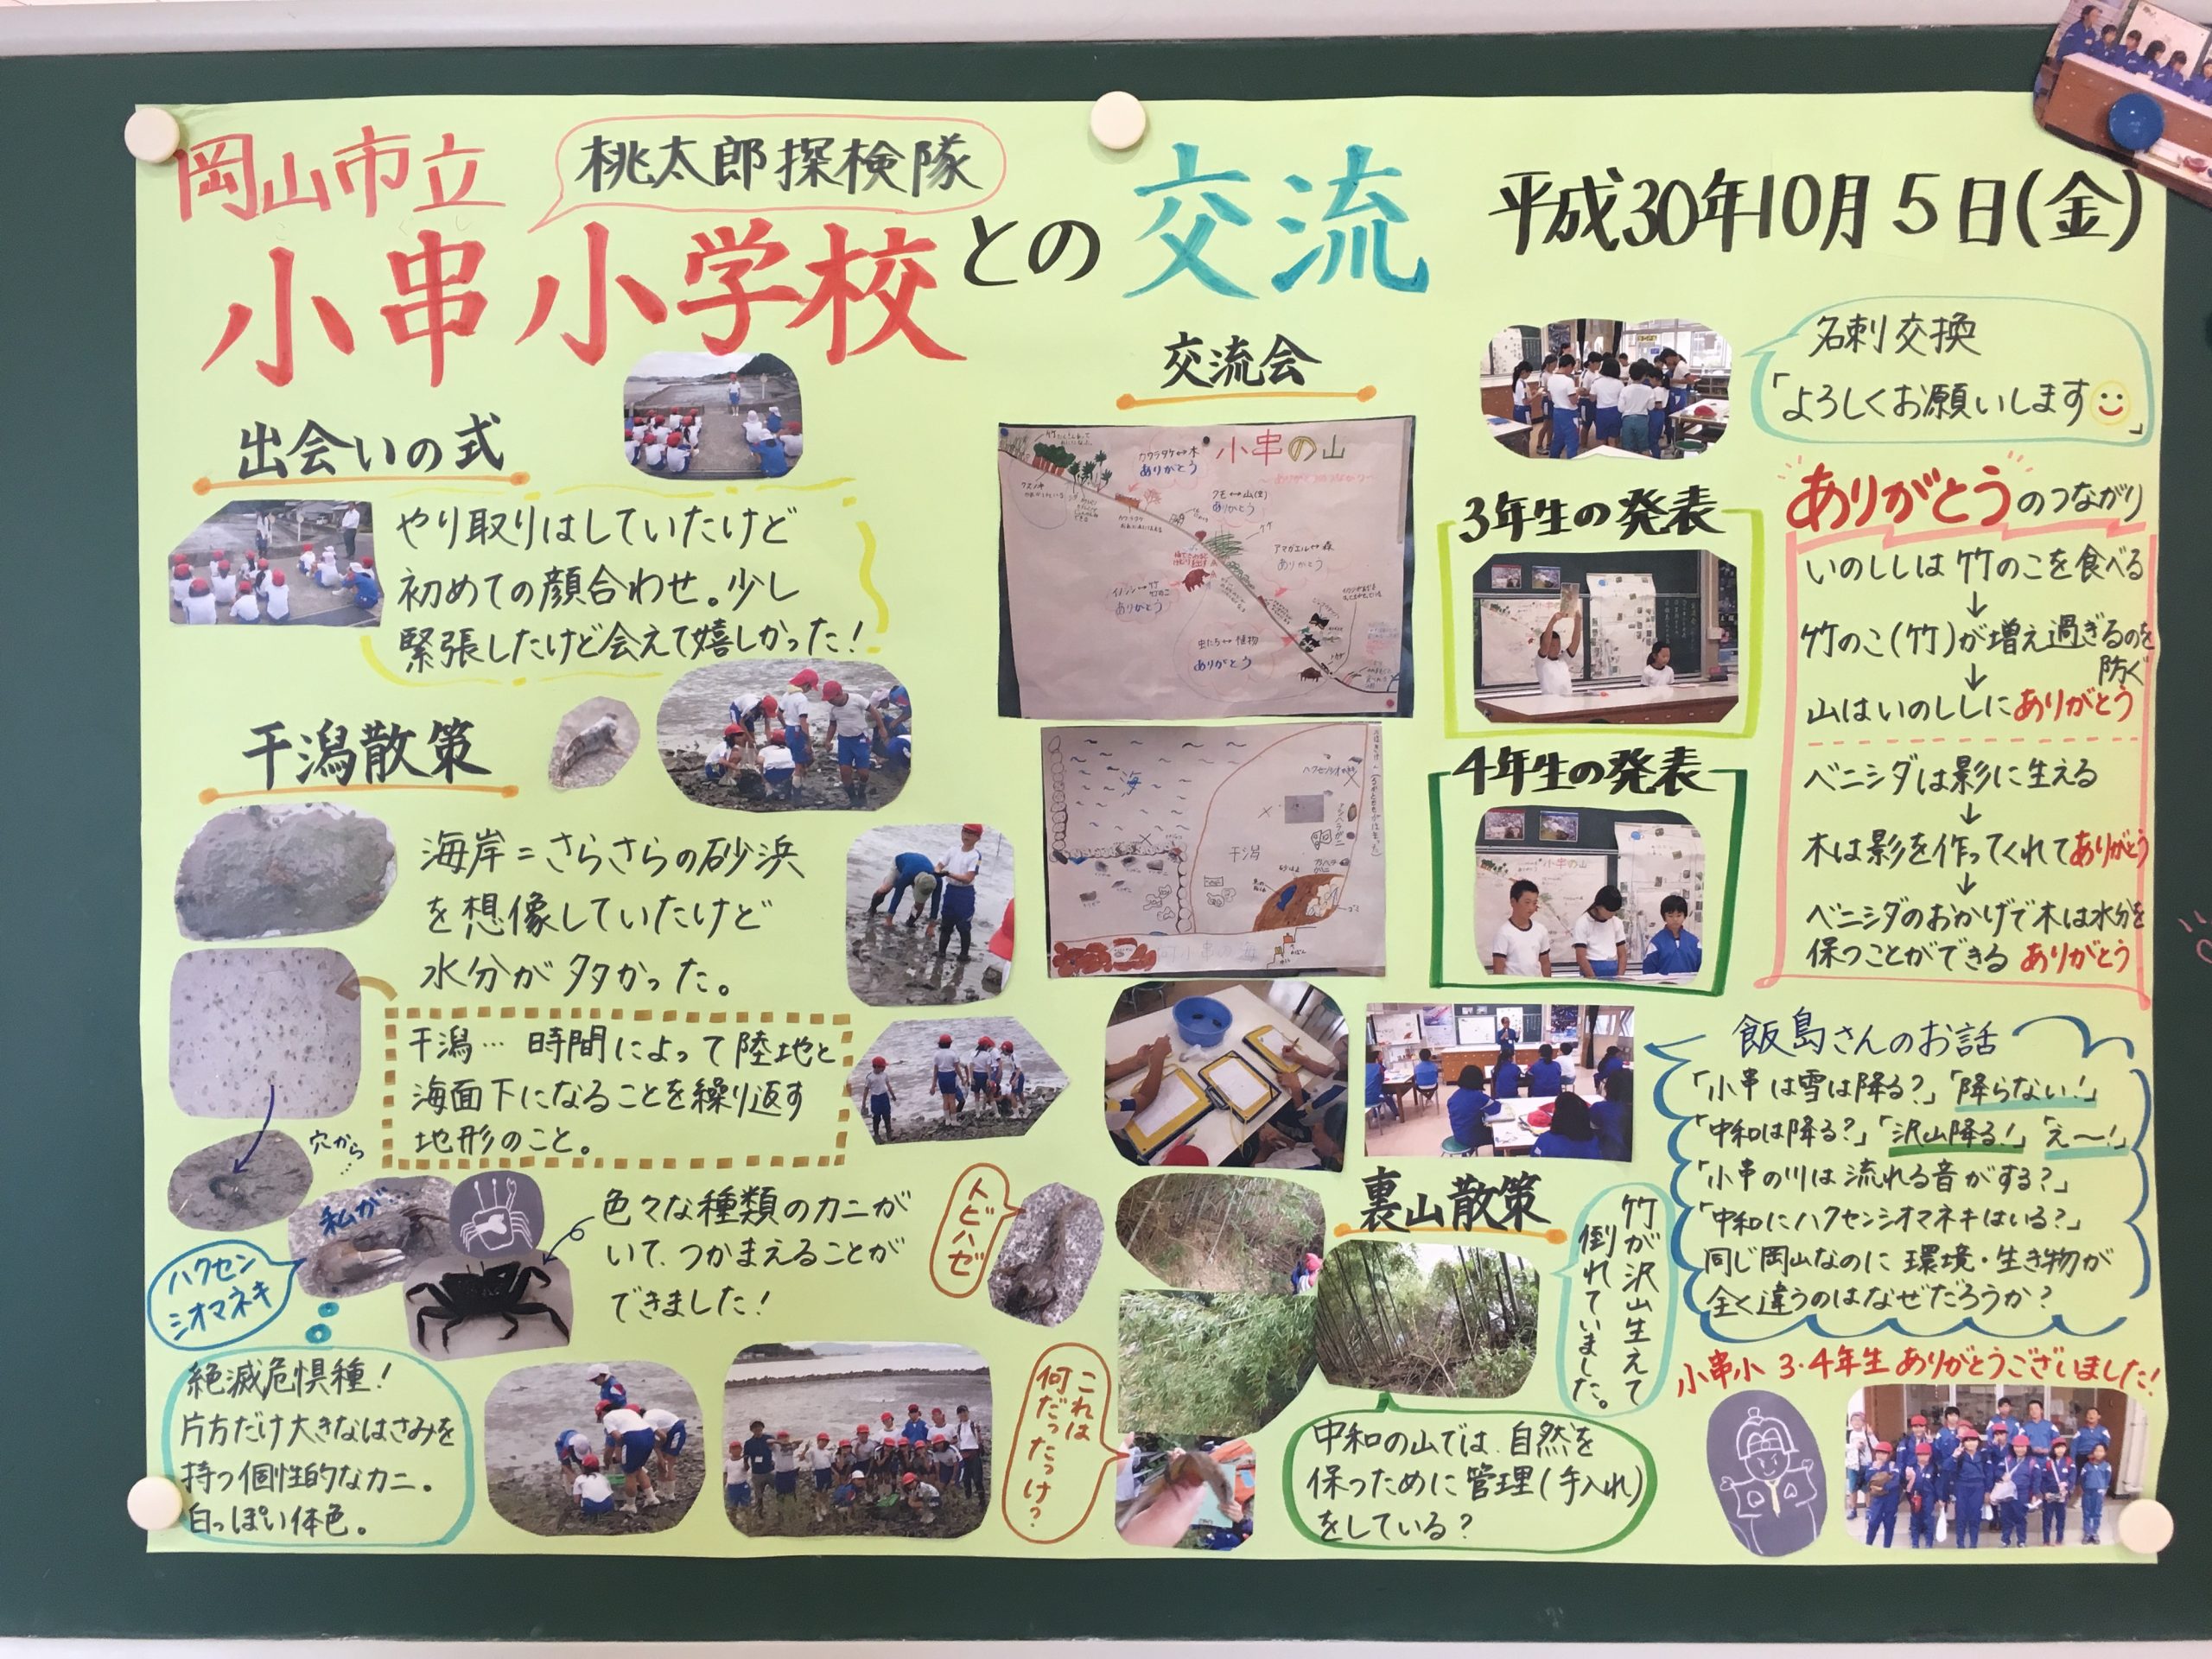 岡山市立
桃太郎探検隊
小串小学校との交流
平成30年10月5日(金)
出会いの式
やり取りはしていたけど
初めての顔合わせ。少し
緊張したけど会えて嬉しかった!
干潟散策
海岸=さらさらの砂浜
を想像していたけど
水分が多かった。
干潟…時間によって陸地と
海面下になることを繰り返す
地形のこと。
穴から…
私が…
ハクセン
シオマネキ
絶滅危惧種!
片方だけ大きなはさみを
持つ個性的なカニ。
白っぽい体色。
色々な種類のカニが
いて、つかまえることが
できました!
トビハゼ
これは
何だったっけ?
交流会
小串の山
カワラタケ↔木
ありがとう
クモ↔山(生)
ありがとう
アマガエル↔森
ありがとう
イノシシ↔竹
竹のこ
ありがとう
虫たち↔植物
ありがとう
海
干潟
名刺交換
「よろしくお願いします」
3年生の発表
4年生の発表
小串の山
ありがとうのつながり
いのししは竹のこを食べる
↓
竹のこ(竹)が増え過ぎるのを
防ぐ
↓
山はいのししにありがとう
ベニシダは影に生える
↓
木は影を作ってくれてありがとう
↓
ベニシダのおかげで木は水分を
保つことができる ありがとう
飯島さんのお話
「小串は雪は降る?」「降らない!」
「中和は降る?」「沢山降る!」「え〜!」
「小串の川は流れる音がする?」
「中和にハクセンシオマネキはいる?」
同じ岡山なのに環境・生き物が
全く違うのはなぜだろうか?
裏山散策
竹が沢山生えて
倒れていました。
中和の山では、自然を
保つために管理(手入れ)
をしている?
小串小 3・4年生 ありがとうございました!